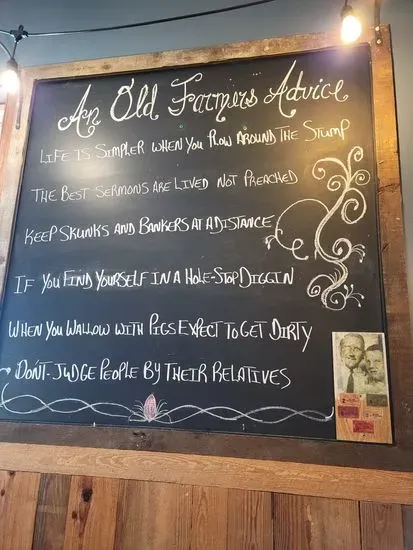 An Old Farmers Advice
Life is Simpler when you Plow Around The Stump
The Best Sermons are Lived Not Preached
Keep Skunks and Bankers at a Distance
If you Find Yourself in a Hole-Stop Diggin
When you Wallow with Pigs Expect to Get Dirty
Don't-Judge People By Their Relatives